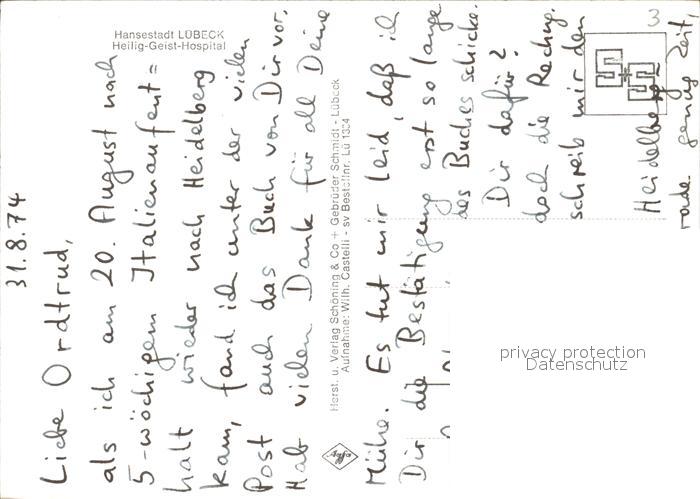 Hansestadt LÜBECK
Heilig-Geist-Hospital
31.8.74
Liebe Ordtrud,
als ich am 20. August nach
5-wöchigem Italienaufent=
halt wieder nach Heidelberg
kam, fand ich unter der vielen
Post auch das Buch von Dir vor.
Hab vielen Dank für all Deine
Herst. u. Verlag Schöning & Co + Gebrüder Schmidt - Lübeck
Aufnahme: Wilh. Castelli - sv Bestellnr. Lü 1304
Agfa
Mühe. Es tut mir leid, daß ich
Dir die Bestätigung erst so lange
des Buches schicke.
Dir dafür?
doch die Rechng.
schreib mir den
Heidelberg
rade genug Zeit,
3
privacy protection
Datenschutz